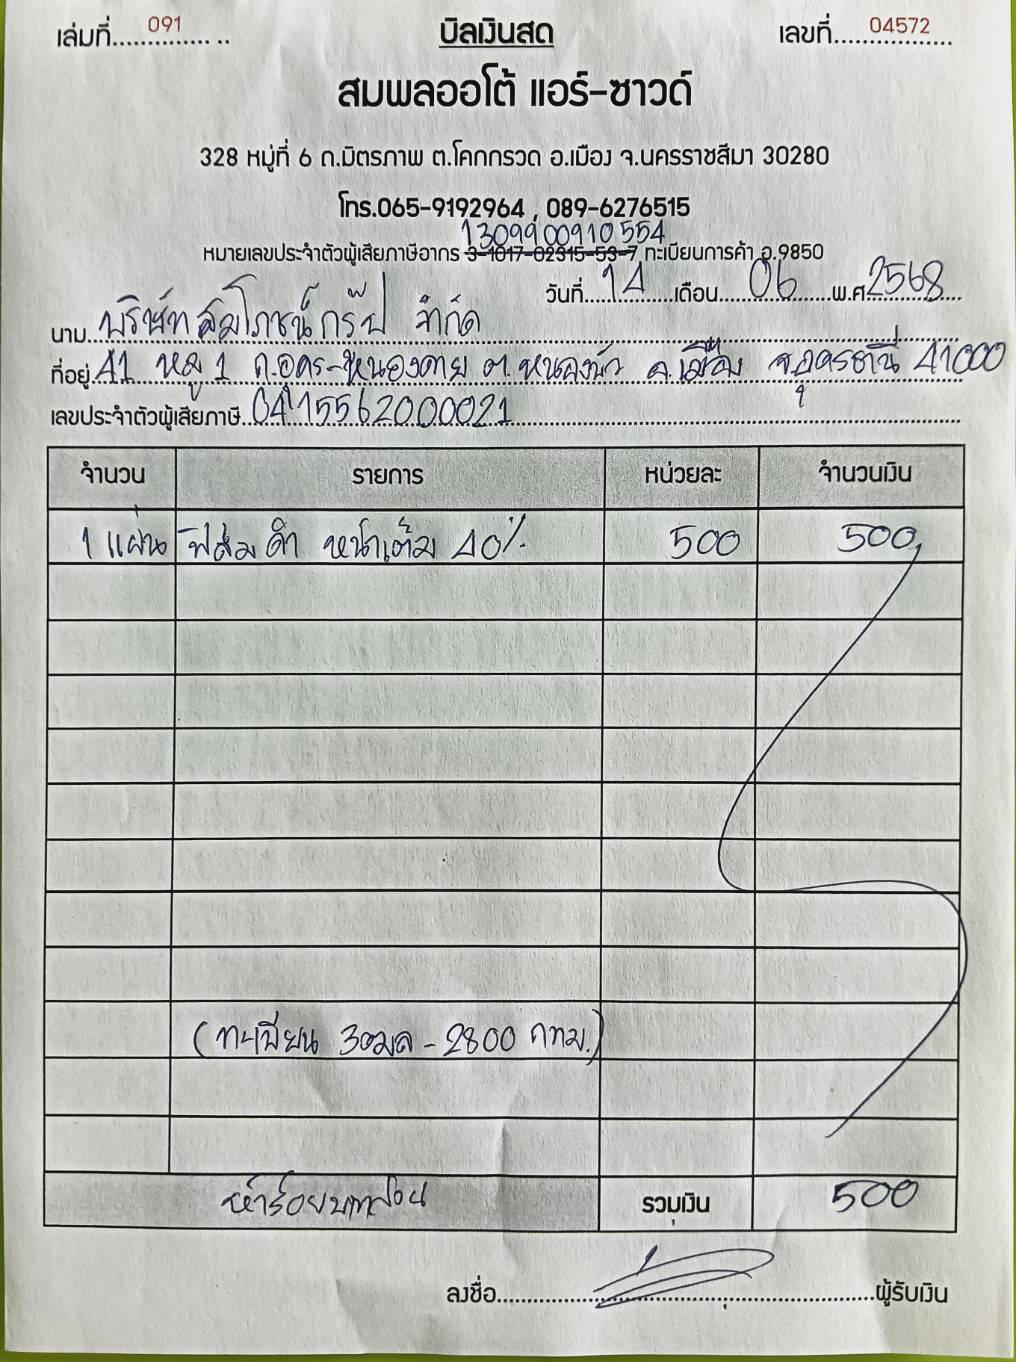 เล่มที่ 091 บิลเงินสด เลขที่ 04572
สมพลออโต้ แอร์-ซาวด์
328 หมู่ที่ 6 ถ.มิตรภาพ ต.โคกกรวด อ.เมือง จ.นครราชสีมา 30280
โทร.065-9192964 , 089-6276515
1309900910554
หมายเลขประจำตัวผู้เสียภาษีอากร 3-1017-02315-53-7 ทะเบียนการค้า อ.9850
วันที่ 14 เดือน 06 พ.ศ 2568
นาม บริษัท สมโภชน์กรุ๊ป จำกัด
ที่อยู่ 41 หมู่ 1 ถ.อุดร-หนองคาย ต.หนองบัว อ.เมือง จ.อุดรธานี 41000
เลขประจำตัวผู้เสียภาษี 0415562000021
จำนวน รายการ หน่วยละ จำนวนเงิน
1 แผ่น ฟิล์มดำ หน้าเต็ม 40% 500 500
(ทะเบียน 3ฒล - 2800 กทม.)
ห้าร้อยบาทถ้วน รวมเงิน 500
ลงชื่อ ผู้รับเงิน